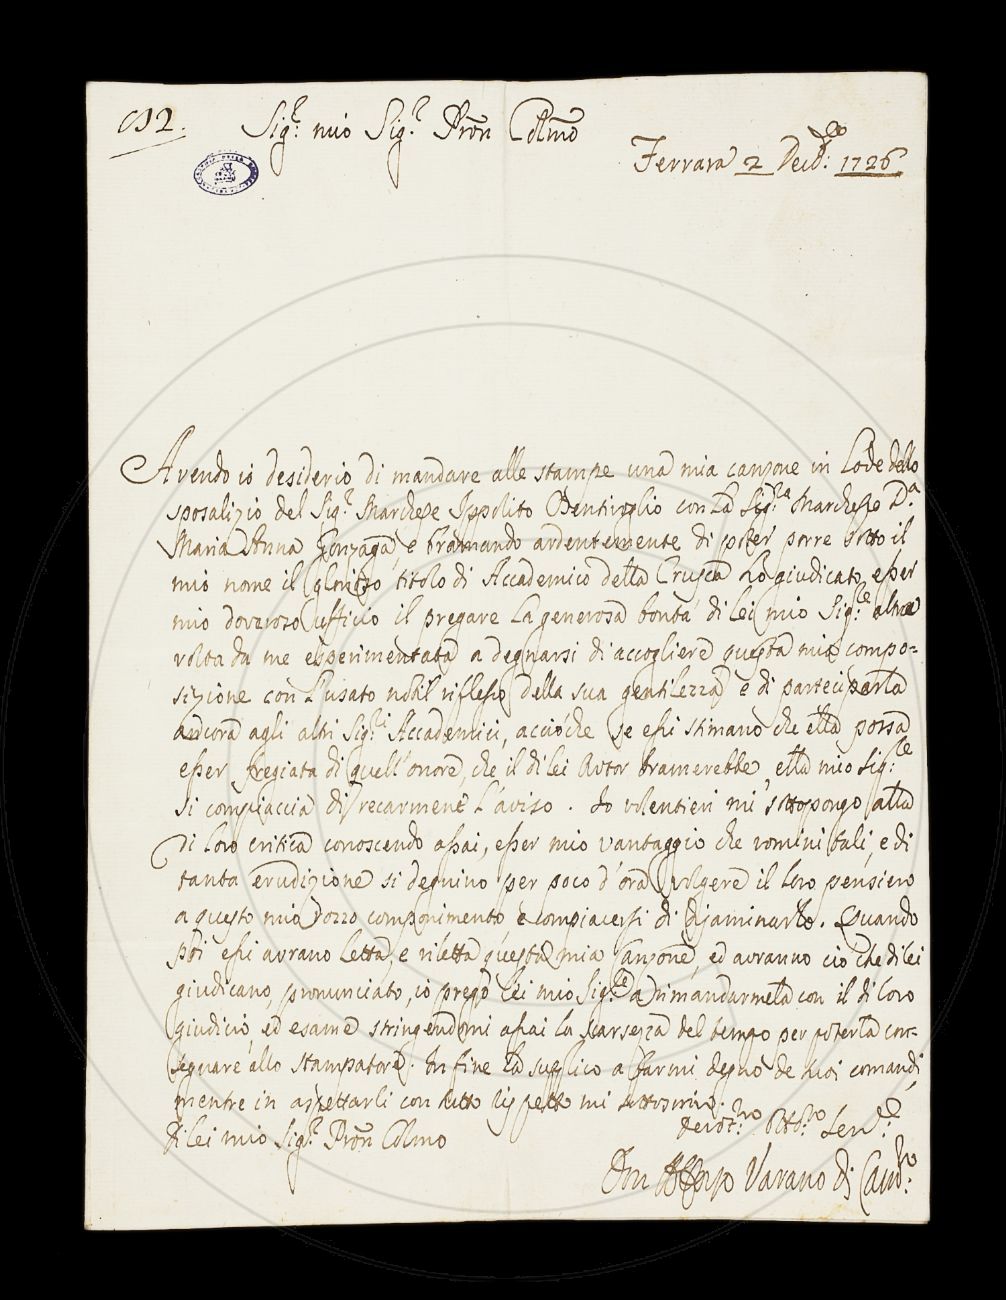 Sig.r mio Sig.r Pron Colmo
Ferrara 2 Decb.: 1726
Avendo io desiderio di mandare alle stampe una mia canzone in Lode dello
sposalizio del Sig.r Marchese Ippolito Bentivoglio con La Sig.ra Marchese D.a
Maria Anna Gonzaga, e bramando ardentemente di poter porre sotto il
mio nome il glorioso titolo di Accademico della Crusca hò giudicato esser
mio doveroso ufficio il pregare La generosa bontà di lei mio Sig.re altra
volta da me esperimentata a degnarsi di accogliere questa mia compo=
sizione con L'usato riflesso della sua gentilezza e di parteciparla
ancora agli altri Sig.ri Accademici, acciòche se essi stimano che ella possa
esser fregiata di quell'onore, che il di lei Autor bramerebbe, ella mio Sig.re
si compiaccia di recarmene L'aviso. Io volentieri mi sottopongo alla
di loro critica conoscendo assai, esser mio vantaggio che uomini tali, e di
tanta erudizione si degnino per poco d'ora volgere il loro pensiero
a questo mio rozzo componimento, e compiacersi di esaminarlo. Quando
poi essi avrano letta, e riletta questa mia Canzone, ed avranno ciò che di lei
giudicano, pronunciato, io prego lei mio Sig.re a rimandarmela con il di loro
giudicio, ed esame stringendomi assai la scarsezza del tempo per poterla con-
segnare allo stampatore. In fine La supplico a farmi degno de suoi comandi,
mentre in aspettarli con tutto rispetto mi sottoscrivo.
di lei mio Sig.r Pron Colmo
Devot.mo Obb.mo Serv.e
Don Alfonso Varano di Cam.no